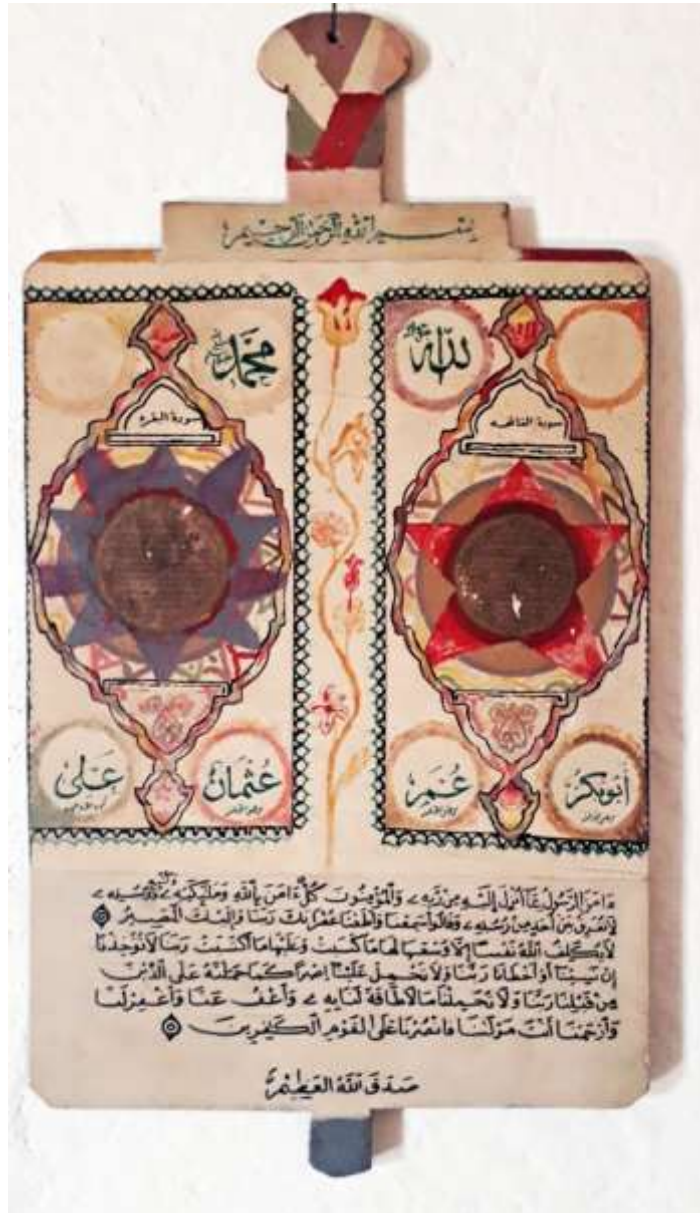 بسم الله الرحمن الرحيم
الله
محمد
سورة الفاتحه
سورة البقرة
أبوبكر
عمر
عثمان
على
ءامن الرسول بما أنزل إليه من ربه والمؤمنون كل ءامن بالله ومليكته وكتبه ورسله
لا نفرق بين أحد من رسله وقالوا سمعنا وأطعنا غفرانك ربنا وإليك المصير
لا يكلف الله نفسا إلا وسعها لها ما كسبت وعليها ما اكتسبت ربنا لا تؤاخذنا
إن نسينا أو أخطأنا ربنا ولا تحمل علينا إصرا كما حملته على الذين
من قبلنا ربنا ولا تحملنا ما لا طاقة لنا به واعف عنا واغفر لنا
وارحمنا أنت مولنا فانصرنا على القوم الكفرين
صدق الله العظيم